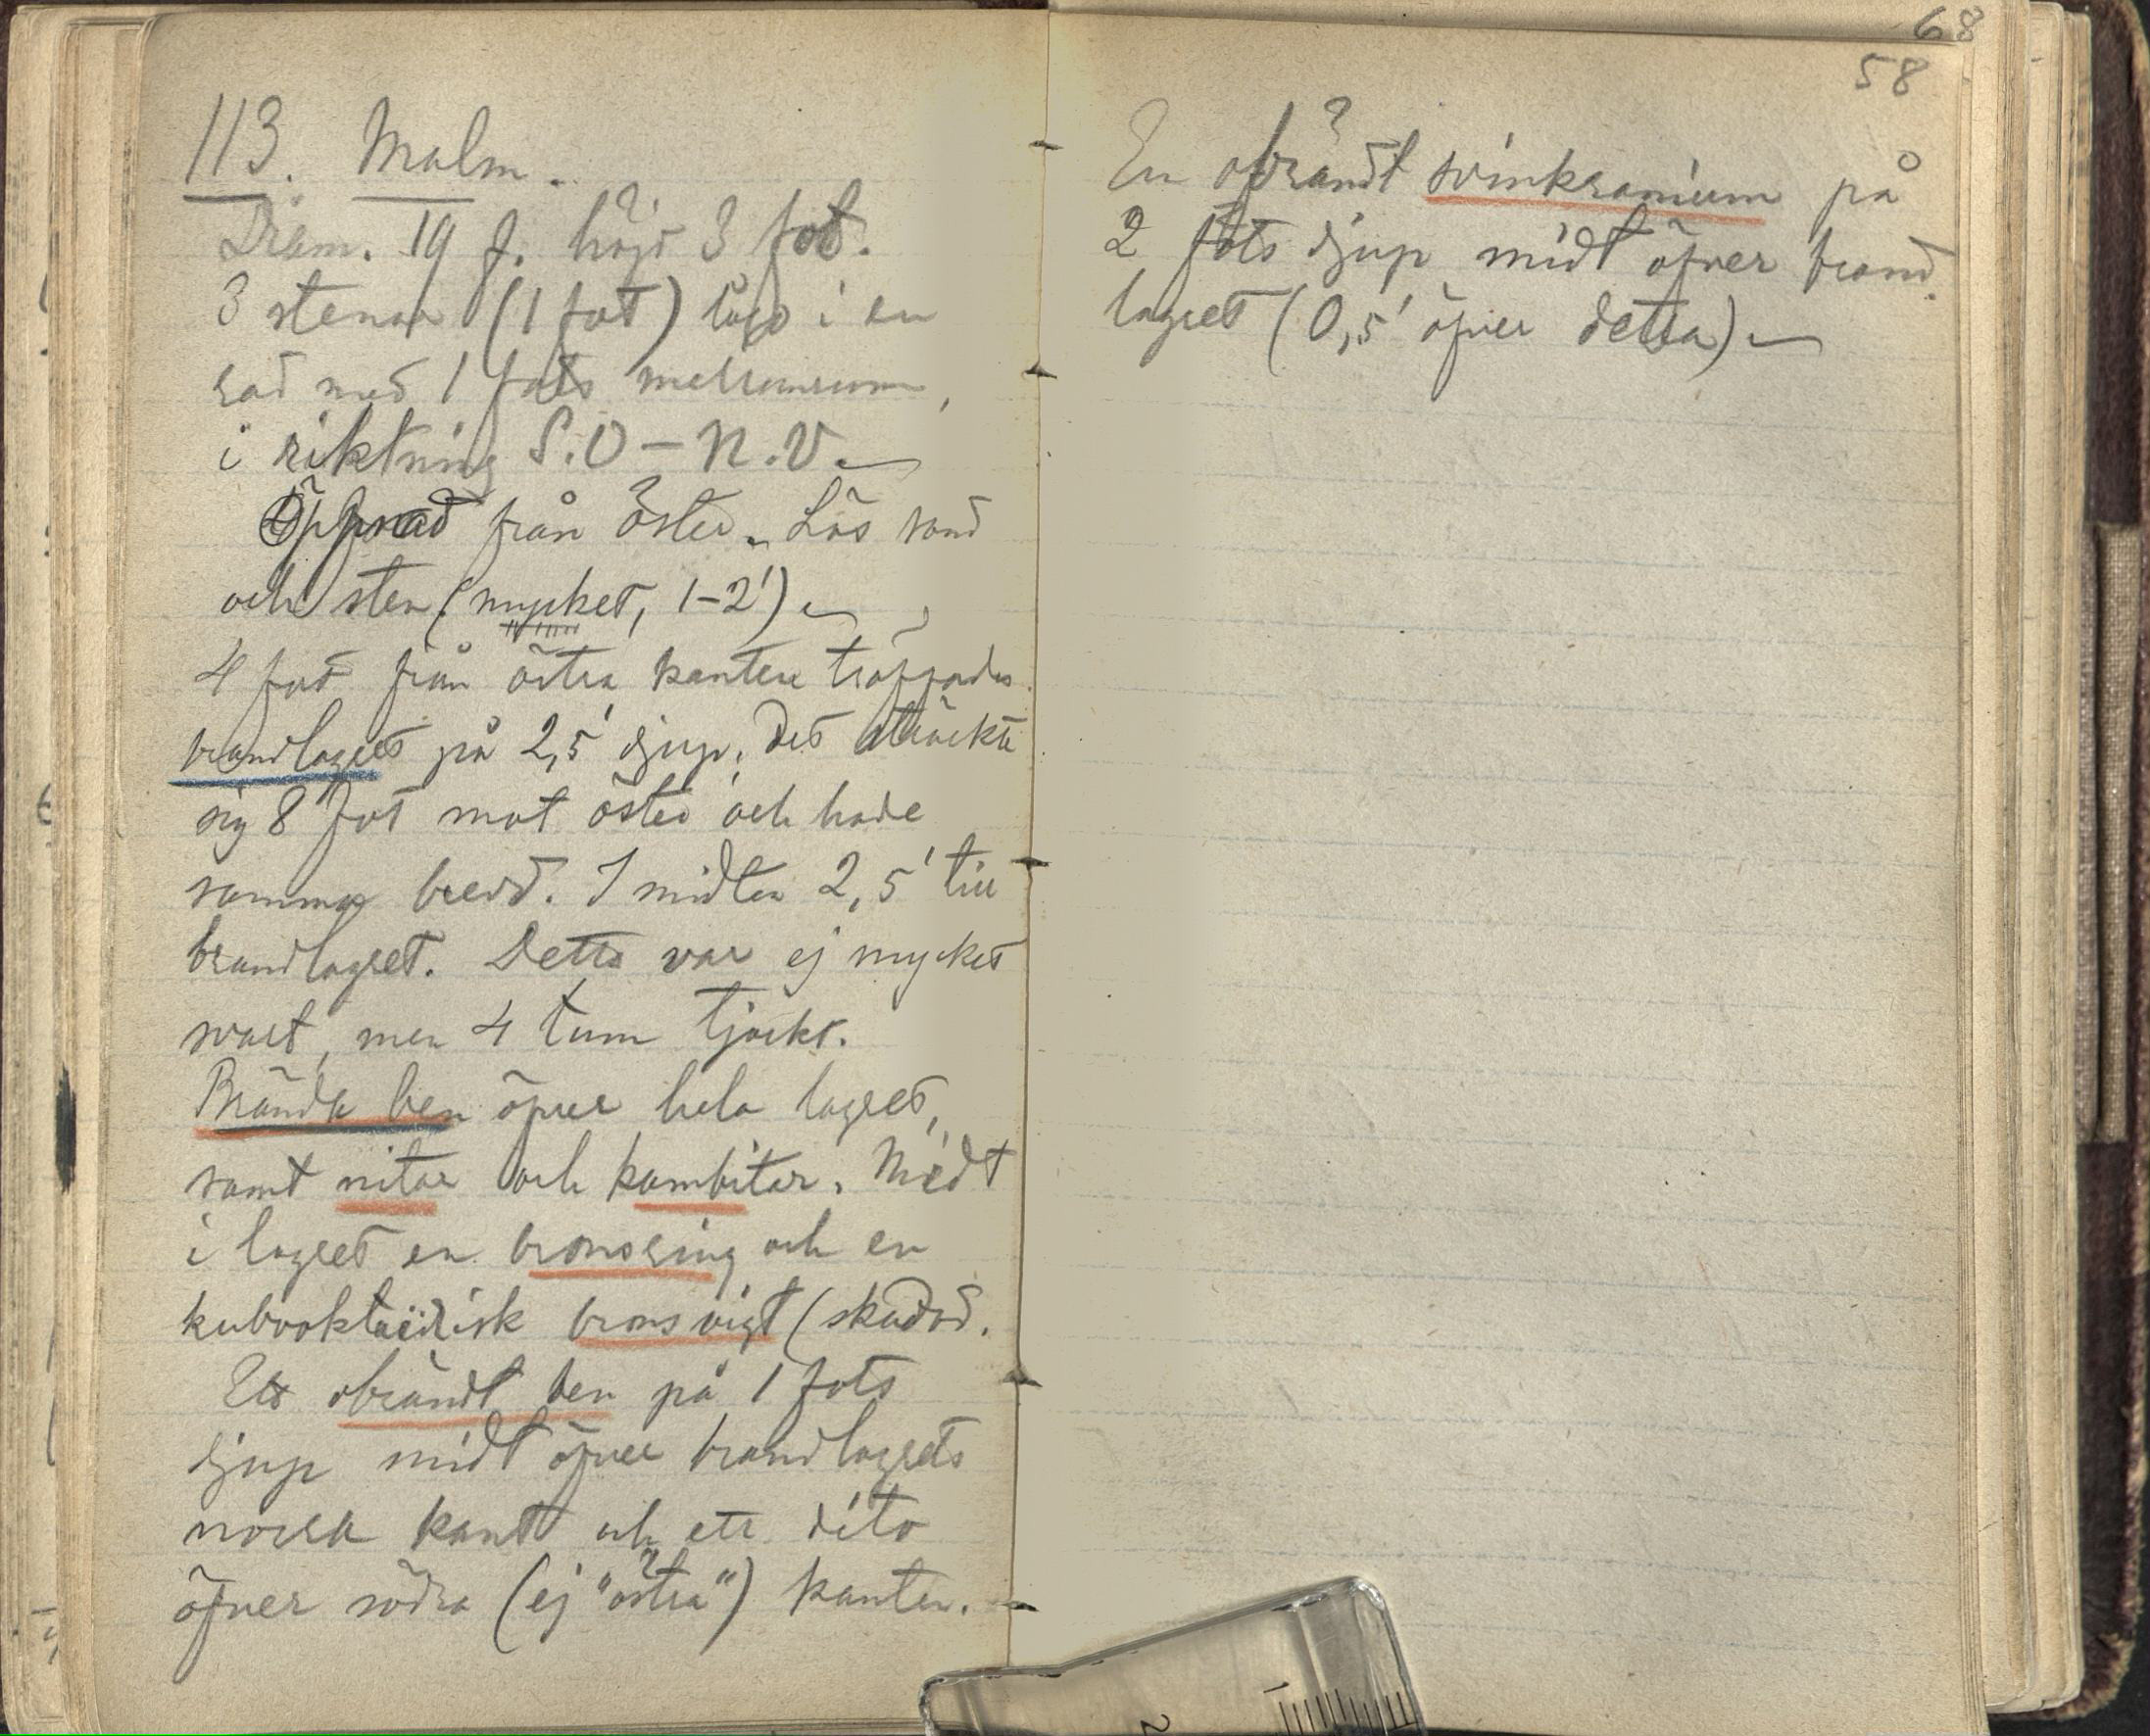 113. Malm.
Diam. 19 f. höjd 3 fot.
3 stenar (1 fot) lågo i en
rad med 1 fots mellanrum,
i riktning S.O – N.V.
Öppnad från öster. Lös sand
och sten (mycket, 1–2')
4 fot från östra kanten träffades
brandlagret på 2,5' djup. Det sträckte
sig 8 fot mot öster och hade
samma bredd. I midten 2,5' till
brandlagret. Detta var ej mycket
svart, men 4 tum tjockt.
Brända ben öfver hela lagret,
samt nitar och kambitar. Midt
i lagret en bronsring och en
kubooktaëdrisk bronsvigt (skadad.
Ett obrändt ben på 1 fots
djup midt öfver brandlagrets
norra kant och ett dito
öfver södra (ej "östra") kanten.
68
58
En obrändt svinkranium på
2 fots djup midt öfver brand
lagret (0,5' öfver detta)